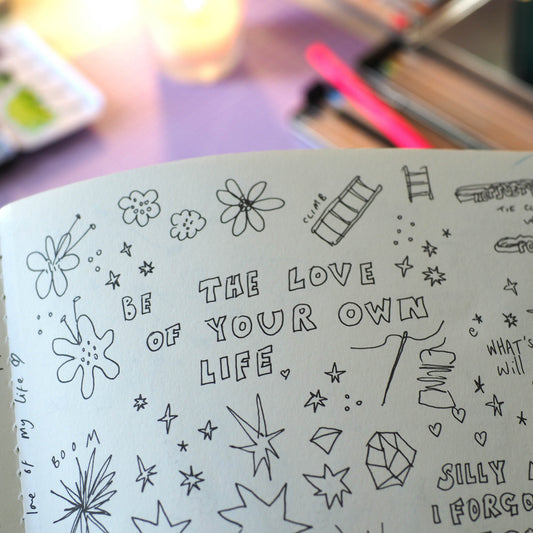 CLIMB
BE THE LOVE
OF YOUR OWN
LIFE.
WHAT'S
will
love of my life
BOOM
SILLY
I FORGO